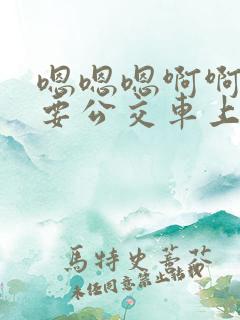 嗯嗯嗯啊啊
要公交车上
馬特史蒂芬
未任同意禁止轉載